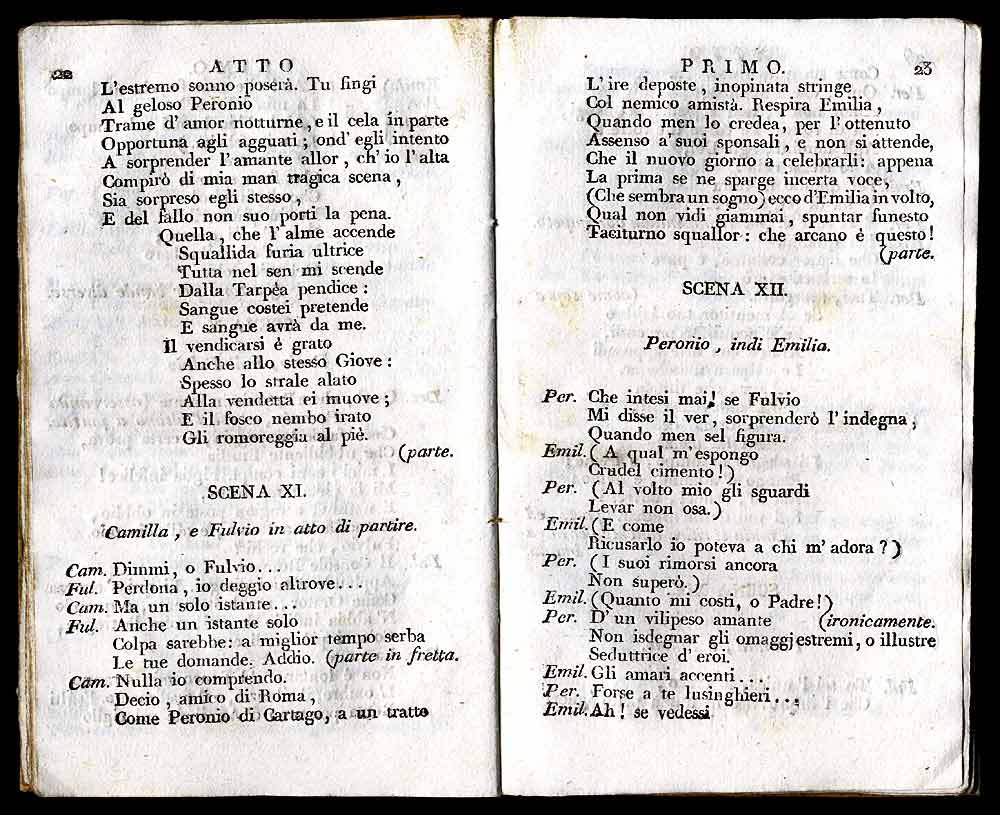 22
ATTO
L'estremo sonno poserà. Tu fingi
Al geloso Peronio
Trame d'amor notturne, e il cela in parte
Opportuna agli agguati; ond'egli intento
A sorprender l'amante allor, ch'io l'alta
Compirò di mia man tragica scena,
Sia sorpreso egli stesso,
E del fallo non suo porti la pena.
Quella, che l'alme accende
Squallida furia ultrice
Tutta nel sen mi scende
Dalla Tarpéa pendice:
Sangue costei pretende
E sangue avrà da me.
Il vendicarsi è grato
Anche allo stesso Giove:
Spesso lo strale alato
Alla vendetta ei muove;
E il fosco nembo irato
Gli romoreggia al piè.
(parte.
SCENA XI.
Camilla, e Fulvio in atto di partire.
Cam. Dimmi, o Fulvio...
Ful. Perdona, io deggio altrove...
Cam. Ma un solo istante...
Ful. Anche un istante solo
Colpa sarebbe: a miglior tempo serba
Le tue domande. Addio. (parte in fretta.
Cam. Nulla io comprendo.
Decio, amico di Roma,
Come Peronio di Cartago, a un tratto
PRIMO.
23
L'ire deposte, inopinata stringe
Col nemico amistà. Respira Emilia,
Quando men lo credea, per l'ottenuto
Assenso a' suoi sponsali, e non si attende,
Che il nuovo giorno a celebrarli: appena
La prima se ne sparge incerta voce,
(Che sembra un sogno) ecco d'Emilia in volto,
Qual non vidi giammai, spuntar funesto
Taciturno squallor: che arcano è questo!
(parte.
SCENA XII.
Peronio, indi Emilia.
Per. Che intesi mai! se Fulvio
Mi disse il ver, sorprenderò l'indegna,
Quando men sel figura.
Emil. (A qual m'espongo
Crudel cimento!)
Per. (Al volto mio gli sguardi
Levar non osa.)
Emil. (E come
Ricusarlo io poteva a chi m'adora?)
Per. (I suoi rimorsi ancora
Non superò.)
Emil. (Quanto mi costi, o Padre!)
Per. D'un vilipeso amante (ironicamente.
Non isdegnar gli omaggj estremi, o illustre
Seduttrice d'eroi.
Emil. Gli amari accenti...
Per. Forse a te lusinghieri...
Emil. Ah! se vedessi